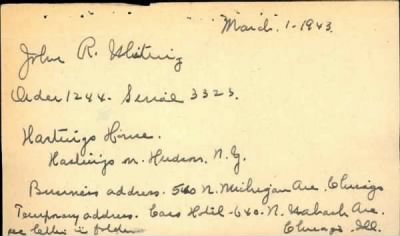 March. 1-1943.
John R. Whiting
Order 1244. Serial 3323.
Hastings House.
Hastings on Hudson, N.Y.
Business address. 540 N. Michigan Ave. Chicago
Temporary address. Cass Hotel - 640 N. Wabash Ave.
see letter in folder Chicago, Ill.